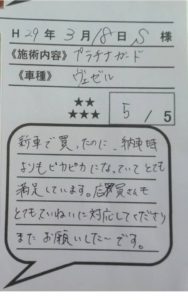 H 29年 3月18日 S 様
《施術内容》プラチナガード
《車種》 ヴェゼル
★★
★★★
5 / 5
新車で買ったのに、納車時
よりもピカピカになっていてとても
満足しています。店員さんも
とてもていねいに対応してくださり
またお願いした〜です。